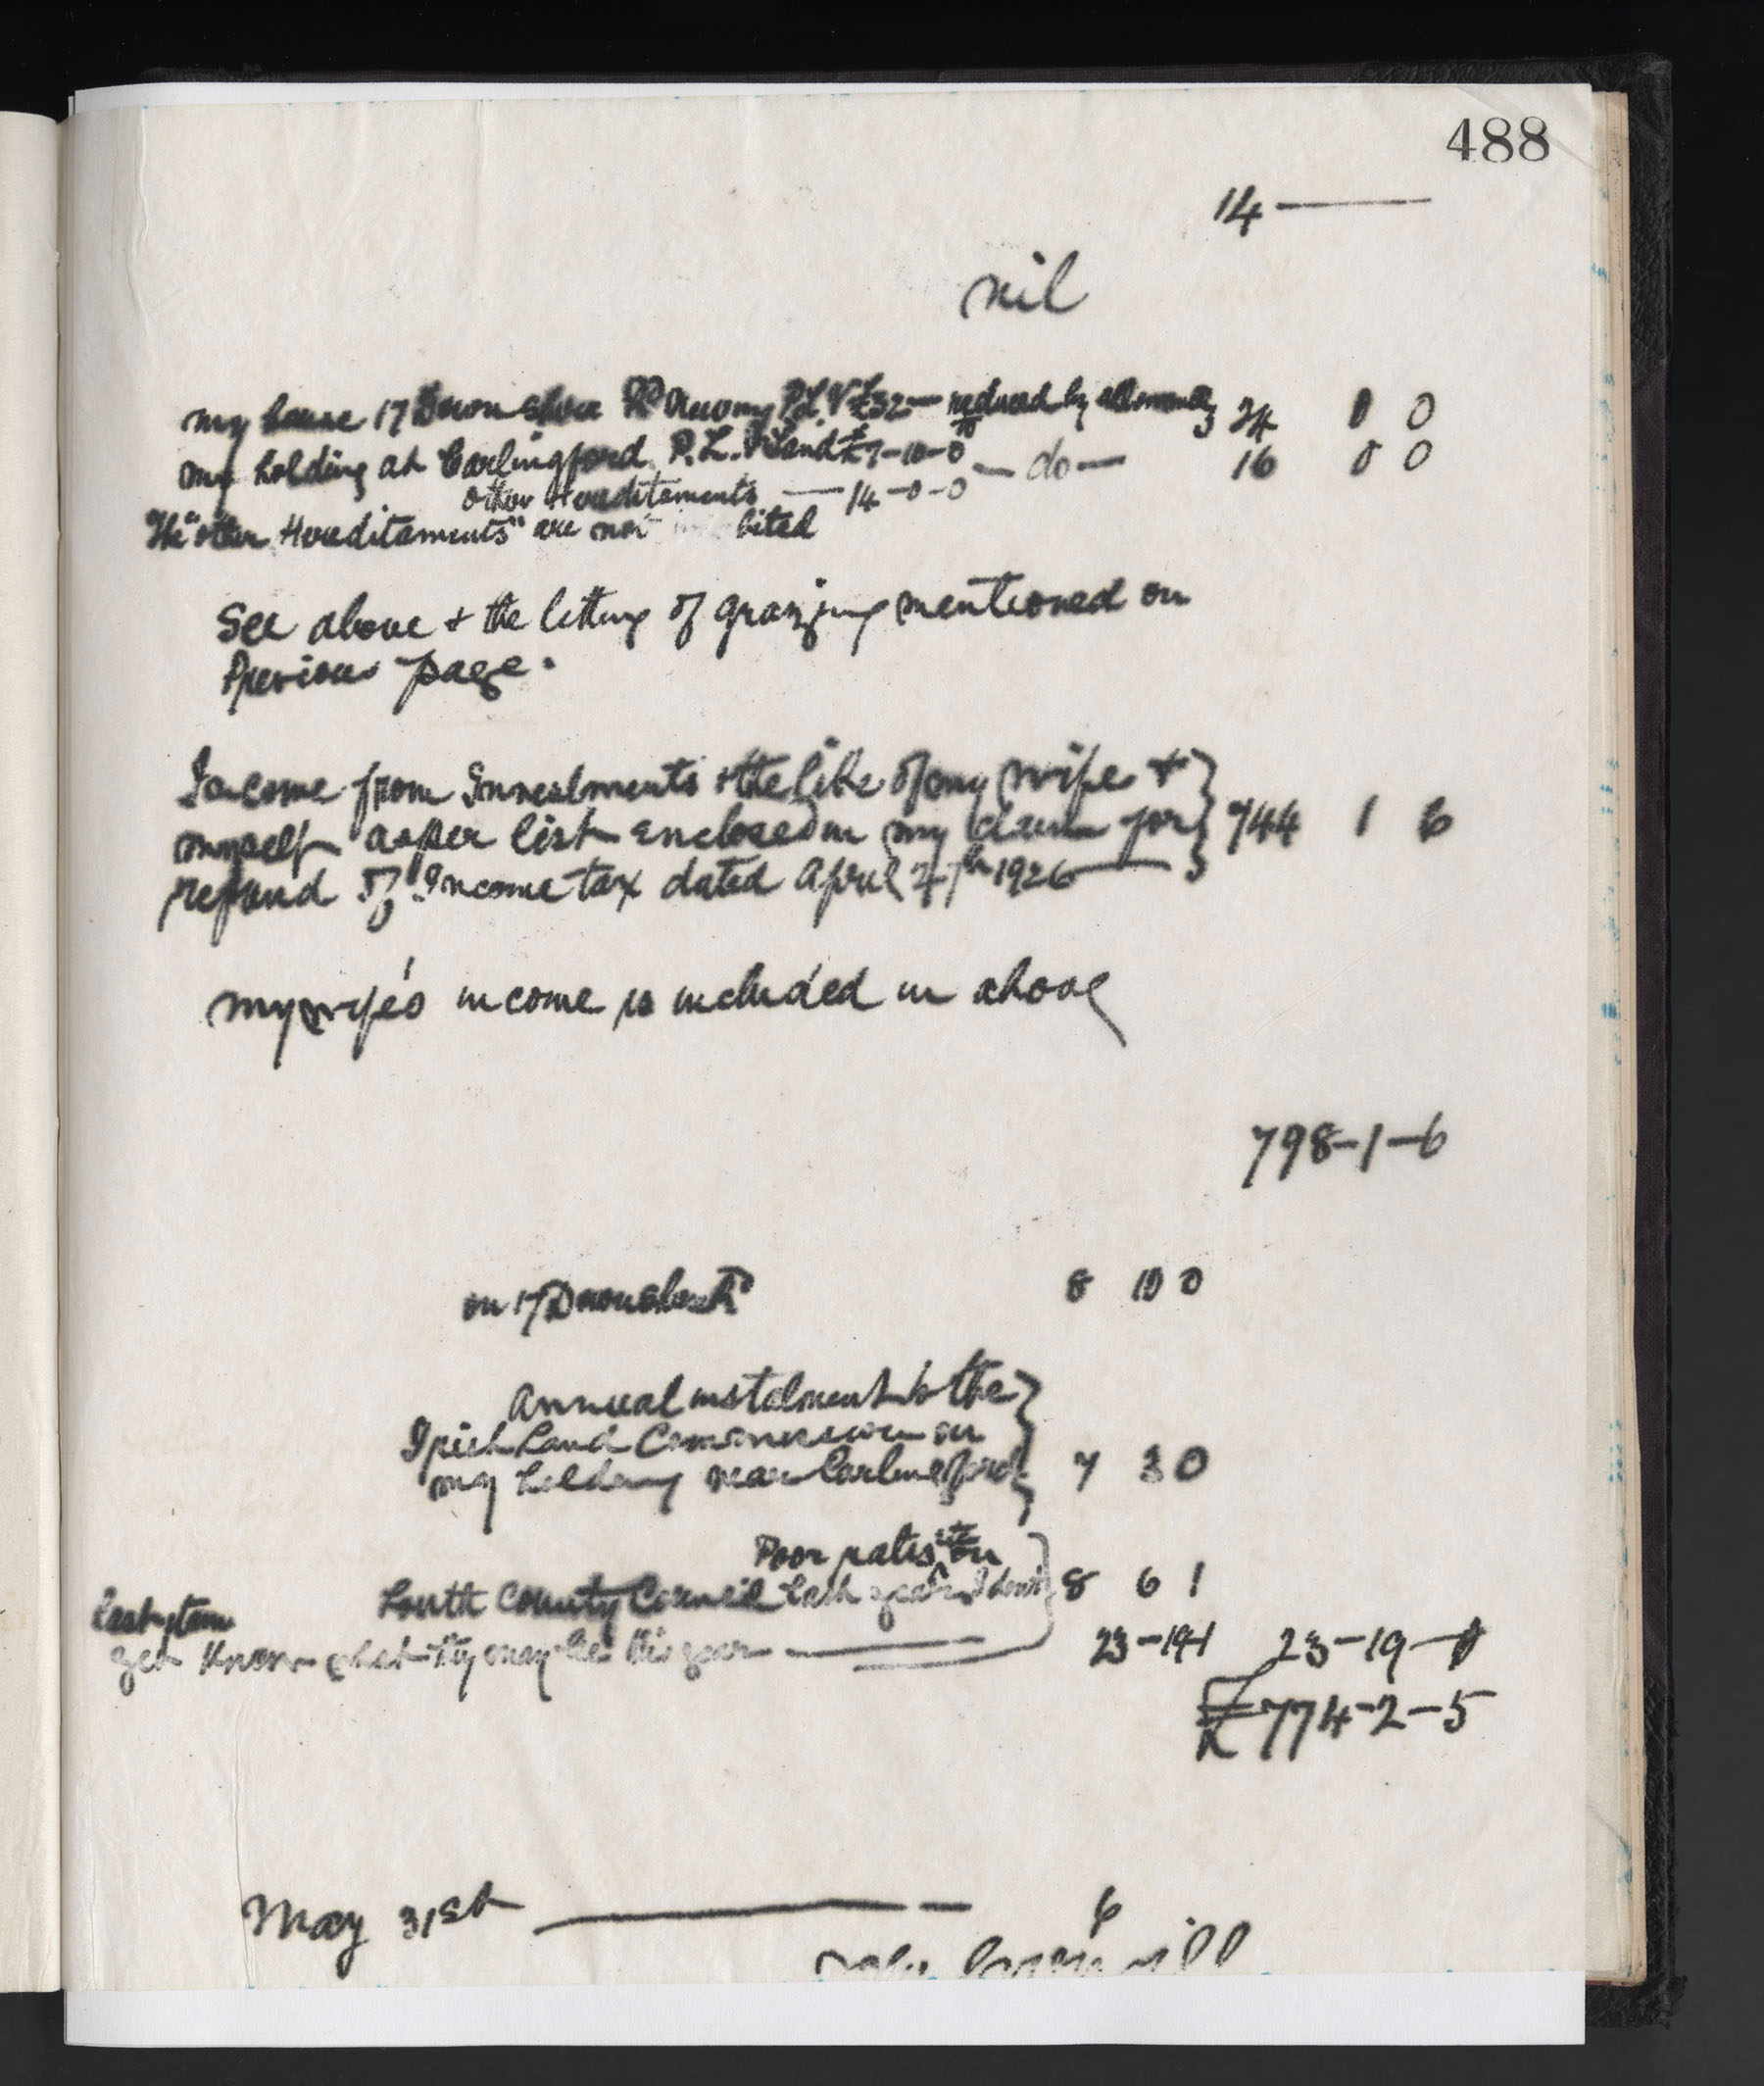 488
14 —
nil
my house 17 Downshire Rd Newry P.L.V £32 — reduced by allowances 24 0 0
my holding at Carlingford. P.L.V Land £7-10-0 — do — 16 0 0
other Hereditaments — 14-0-0
The "other Hereditaments" are not bited
See above + the letting of grazing mentioned on
Previous page.
Income from Investments + the like of my wife +
myself as per list enclosed in my claim for 744 1 6
refund of Income tax dated April 27th 1926
my wife's income is included in above
798-1-6
on 17 Downshire Rd 8 10 0
Annual instalment to the
Irish Land Commission on
my holding near Carlingford 7 3 0
Poor rates
Louth County Council last year I dont 8 6 1
yet know what they may be this year — 23-19-1 23-19-1
£774-2-5
May 31st — 6